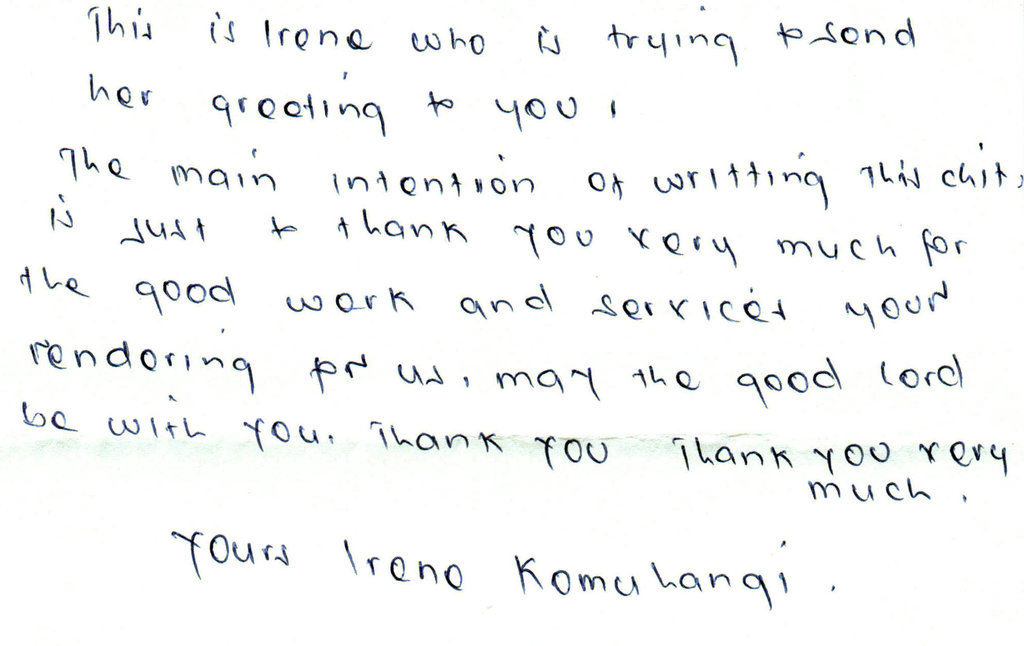 This is Irene who is trying to send
her greeting to you,
The main intention of writting this chit,
is just to thank you very much for
the good work and services your
rendering for us, may the good lord
be with you. Thank you Thank you very
much.
Yours Irene Komuhangi.